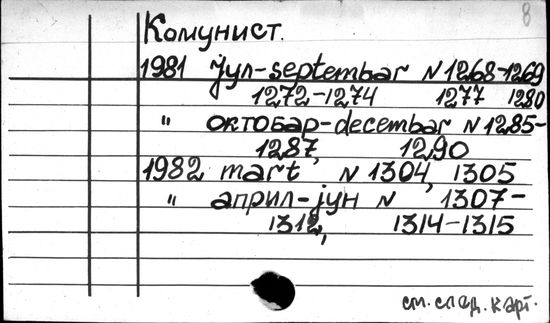 8
Комунист.
1981 јул-septembar N 1268-1269
1272-1274 1277 1280
" октобар-decembar N 1285-
1287, 1290
1982 mart N 1304, 1305
" април-јун N 1307-
1312, 1314-1315
см. след. карт.